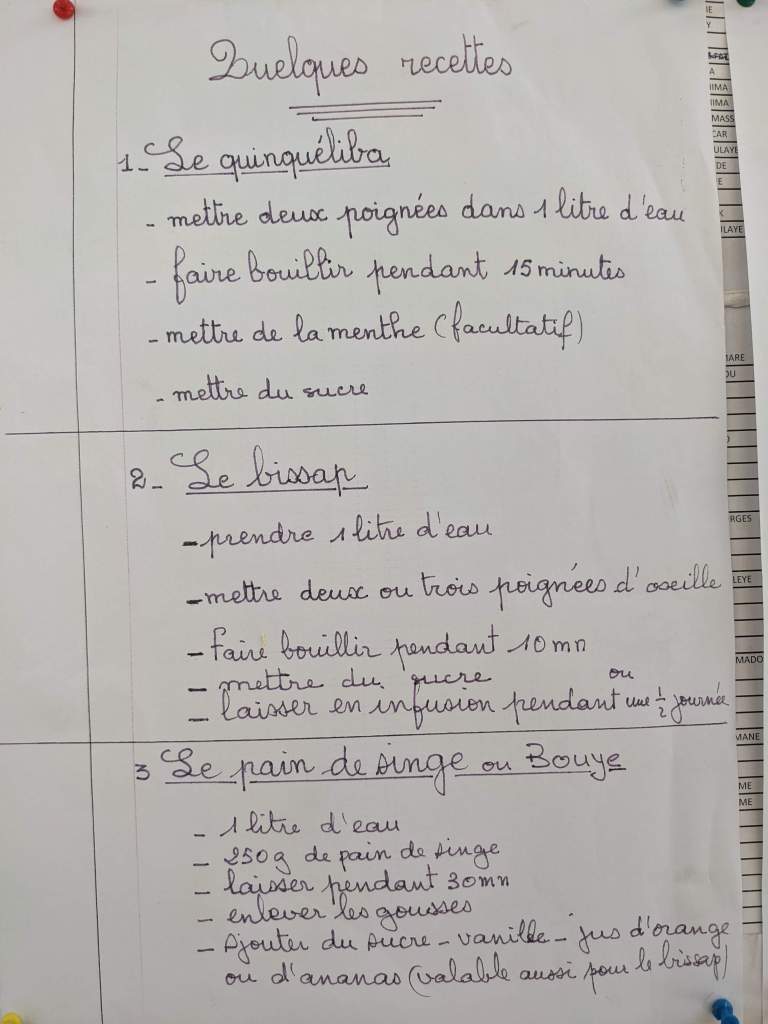 Quelques recettes
1- Le quinquéliba
- mettre deux poignées dans 1 litre d'eau
- faire bouillir pendant 15 minutes
- mettre de la menthe (facultatif)
- mettre du sucre
2- Le bissap
- prendre 1 litre d'eau
- mettre deux ou trois poignées d'oseille
- Faire bouillir pendant 10 mn
- mettre du sucre
ou
- laisser en infusion pendant une 1/2 journée
3 Le pain de singe ou Bouye
- 1 litre d'eau
- 250g de pain de singe
- laisser pendant 30 mn
- enlever les gousses
- Ajouter du sucre - vanille - jus d'orange
ou d'ananas (valable aussi pour le bissap)
IE
Y
A
IIMA
IIMA
MASS
CAR
ULAYE
DE
E
K
ILAYE
MARE
OU
RGES
LEYE
MADO
MANE
ME
ME